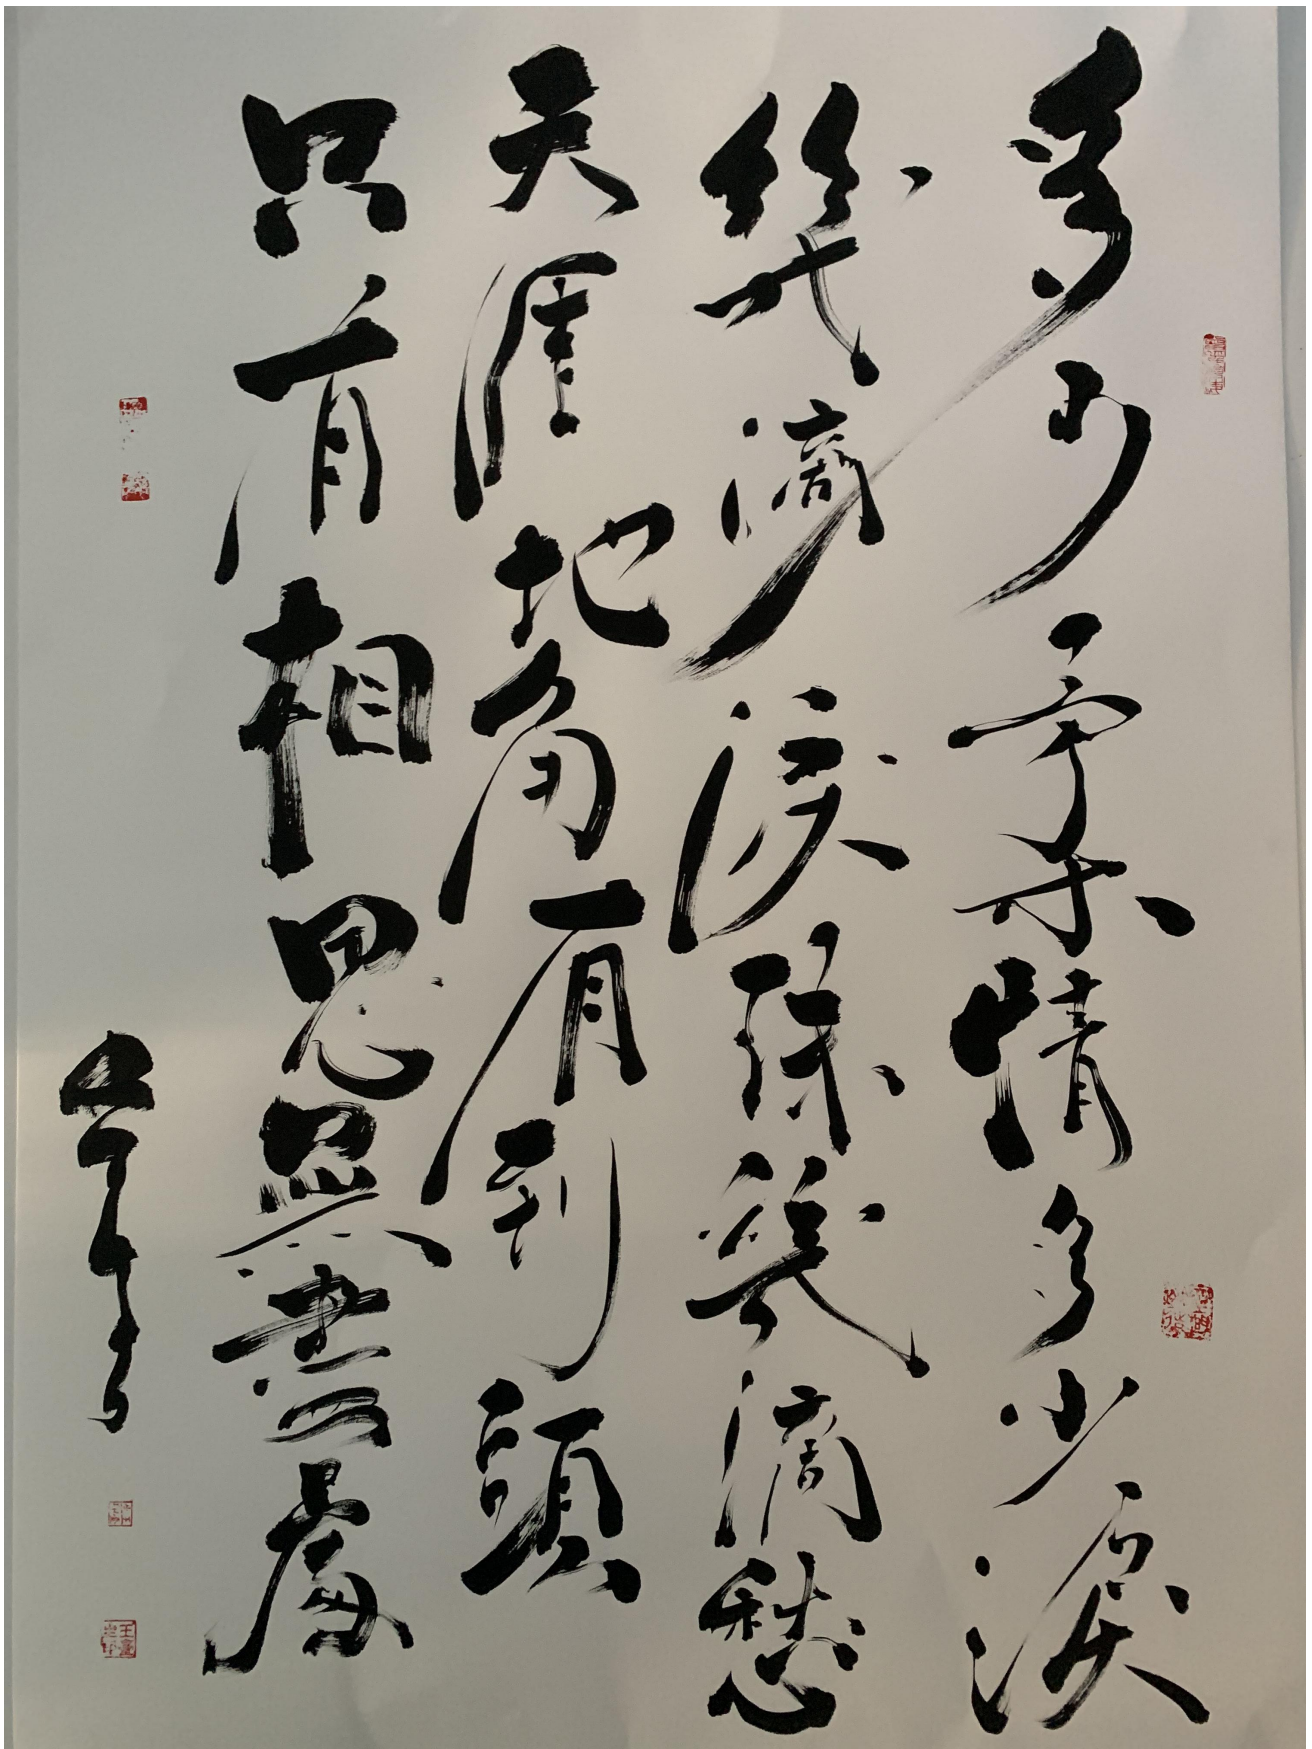 多少柔情多少淚
幾滴淚珠幾滴愁
天涯地角有到頭
只有相思無盡處